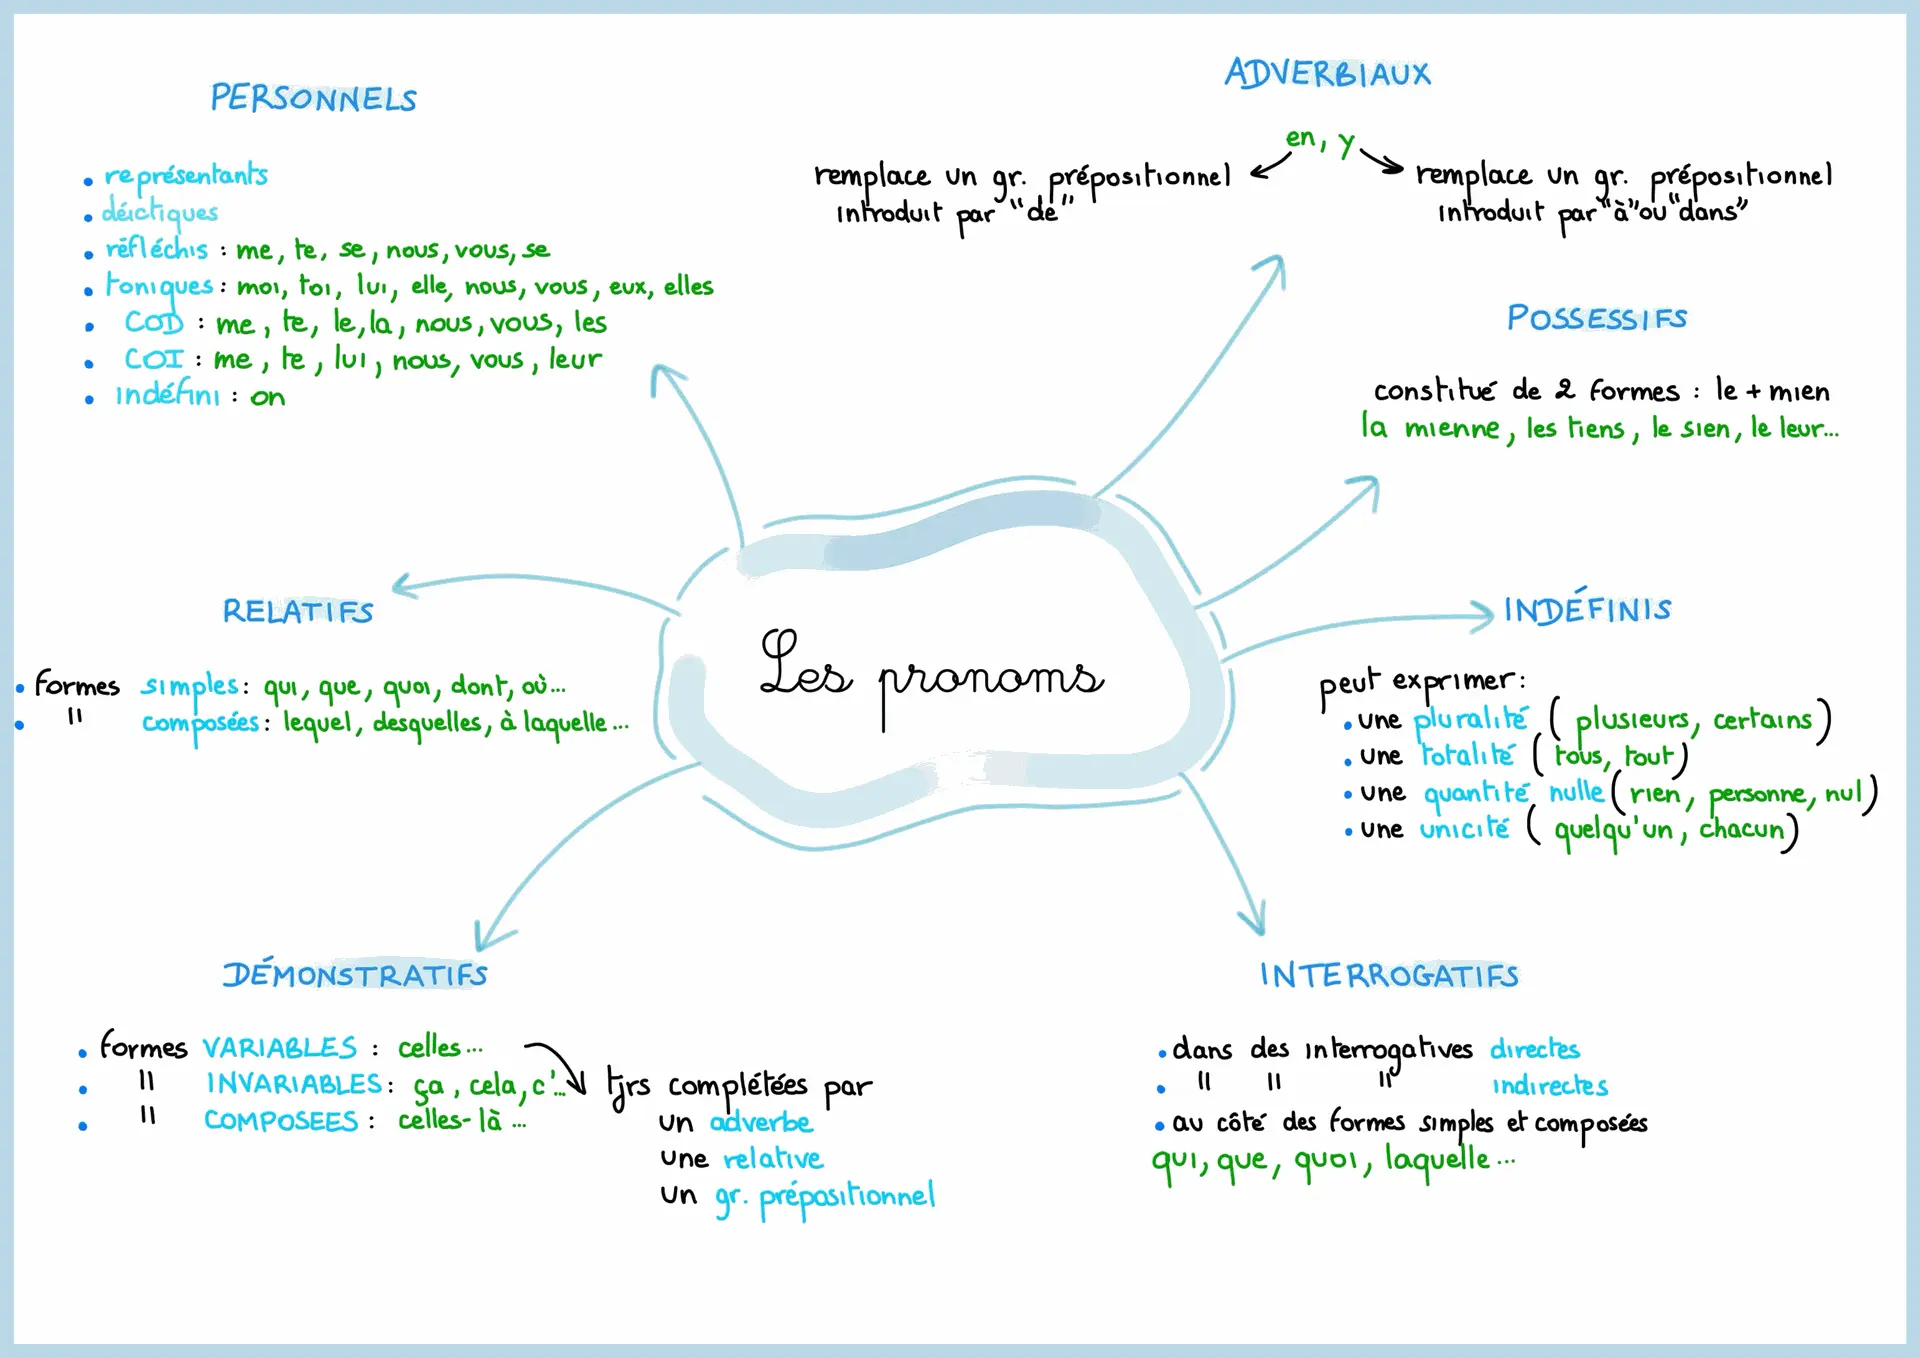 PERSONNELS
• représentants
• déictiques
• réfléchis : me, te, se, nous, vous, se
• toniques : moi, toi, lui, elle, nous, vous, eux, elles
• COD : me, te, le, la, nous, vous, les
• COI : me, te, lui, nous, vous, leur
• indéfini : on
ADVERBIAUX
en, y
remplace un gr. prépositionnel
introduit par "de"
remplace un gr. prépositionnel
introduit par "à" ou "dans"
POSSESSIFS
constitué de 2 formes : le + mien
la mienne, les tiens, le sien, le leur...
RELATIFS
• formes simples : qui, que, quoi, dont, où...
• " composées : lequel, desquelles, à laquelle ...
Les pronoms
INDÉFINIS
peut exprimer :
• une pluralité ( plusieurs, certains )
• une totalité ( tous, tout )
• une quantité nulle ( rien, personne, nul )
• une unicité ( quelqu'un, chacun )
DÉMONSTRATIFS
• formes VARIABLES : celles ...
• " INVARIABLES : ça, cela, c'...
• " COMPOSEES : celles-là ...
tjrs complétées par
un adverbe
une relative
un gr. prépositionnel
INTERROGATIFS
• dans des interrogatives directes
• " " " indirectes
• au côté des formes simples et composées
qui, que, quoi, laquelle ...